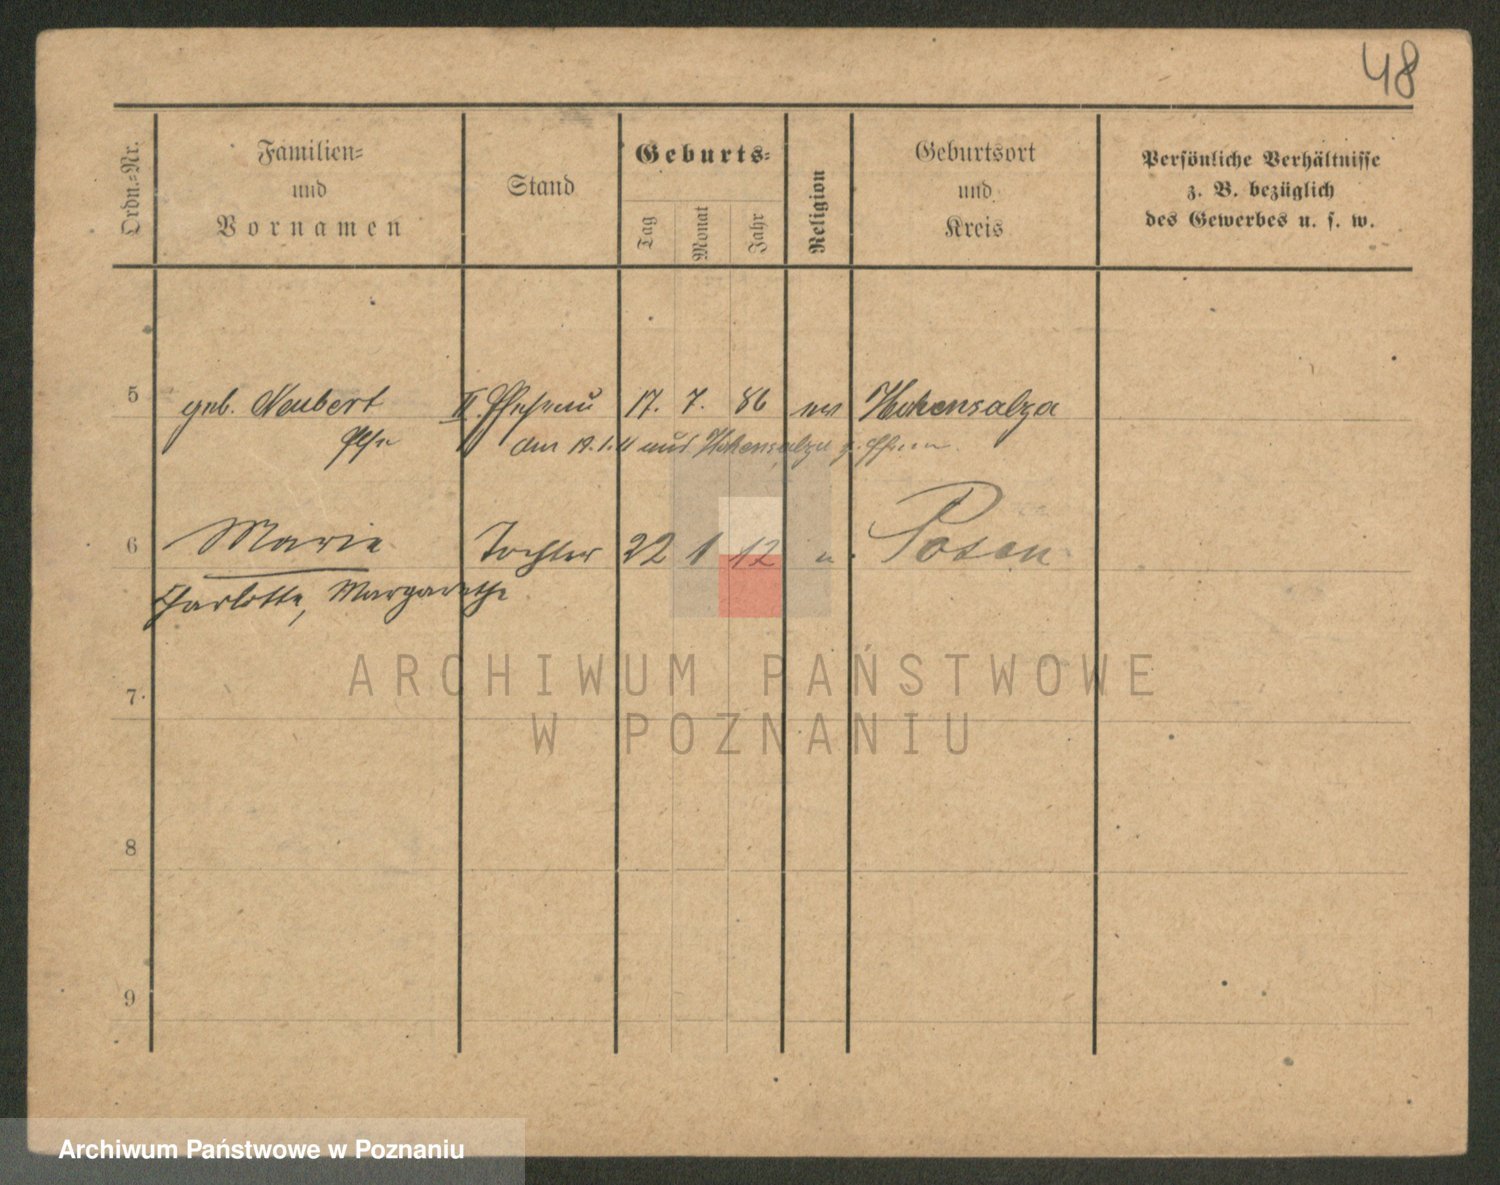 48
Ordn.=Nr.
Familien=
und
Vornamen
Stand
Geburts=
Tag
Monat
Jahr
Religion
Geburtsort
und
Kreis
Persönliche Verhältnisse
z. B. bezüglich
des Gewerbes u. s. w.
5 geb. Neubert II. Ehefrau 17. 7. 86 ev Hohensalza
am 19.1.11 aus Hohensalza z.
6 Marie Tochter 22 1 12 Posen
Charlotte, Margarethe
ARCHIWUM PAŃSTWOWE
7.
W POZNANIU
8
9
Archiwum Państwowe w Poznaniu